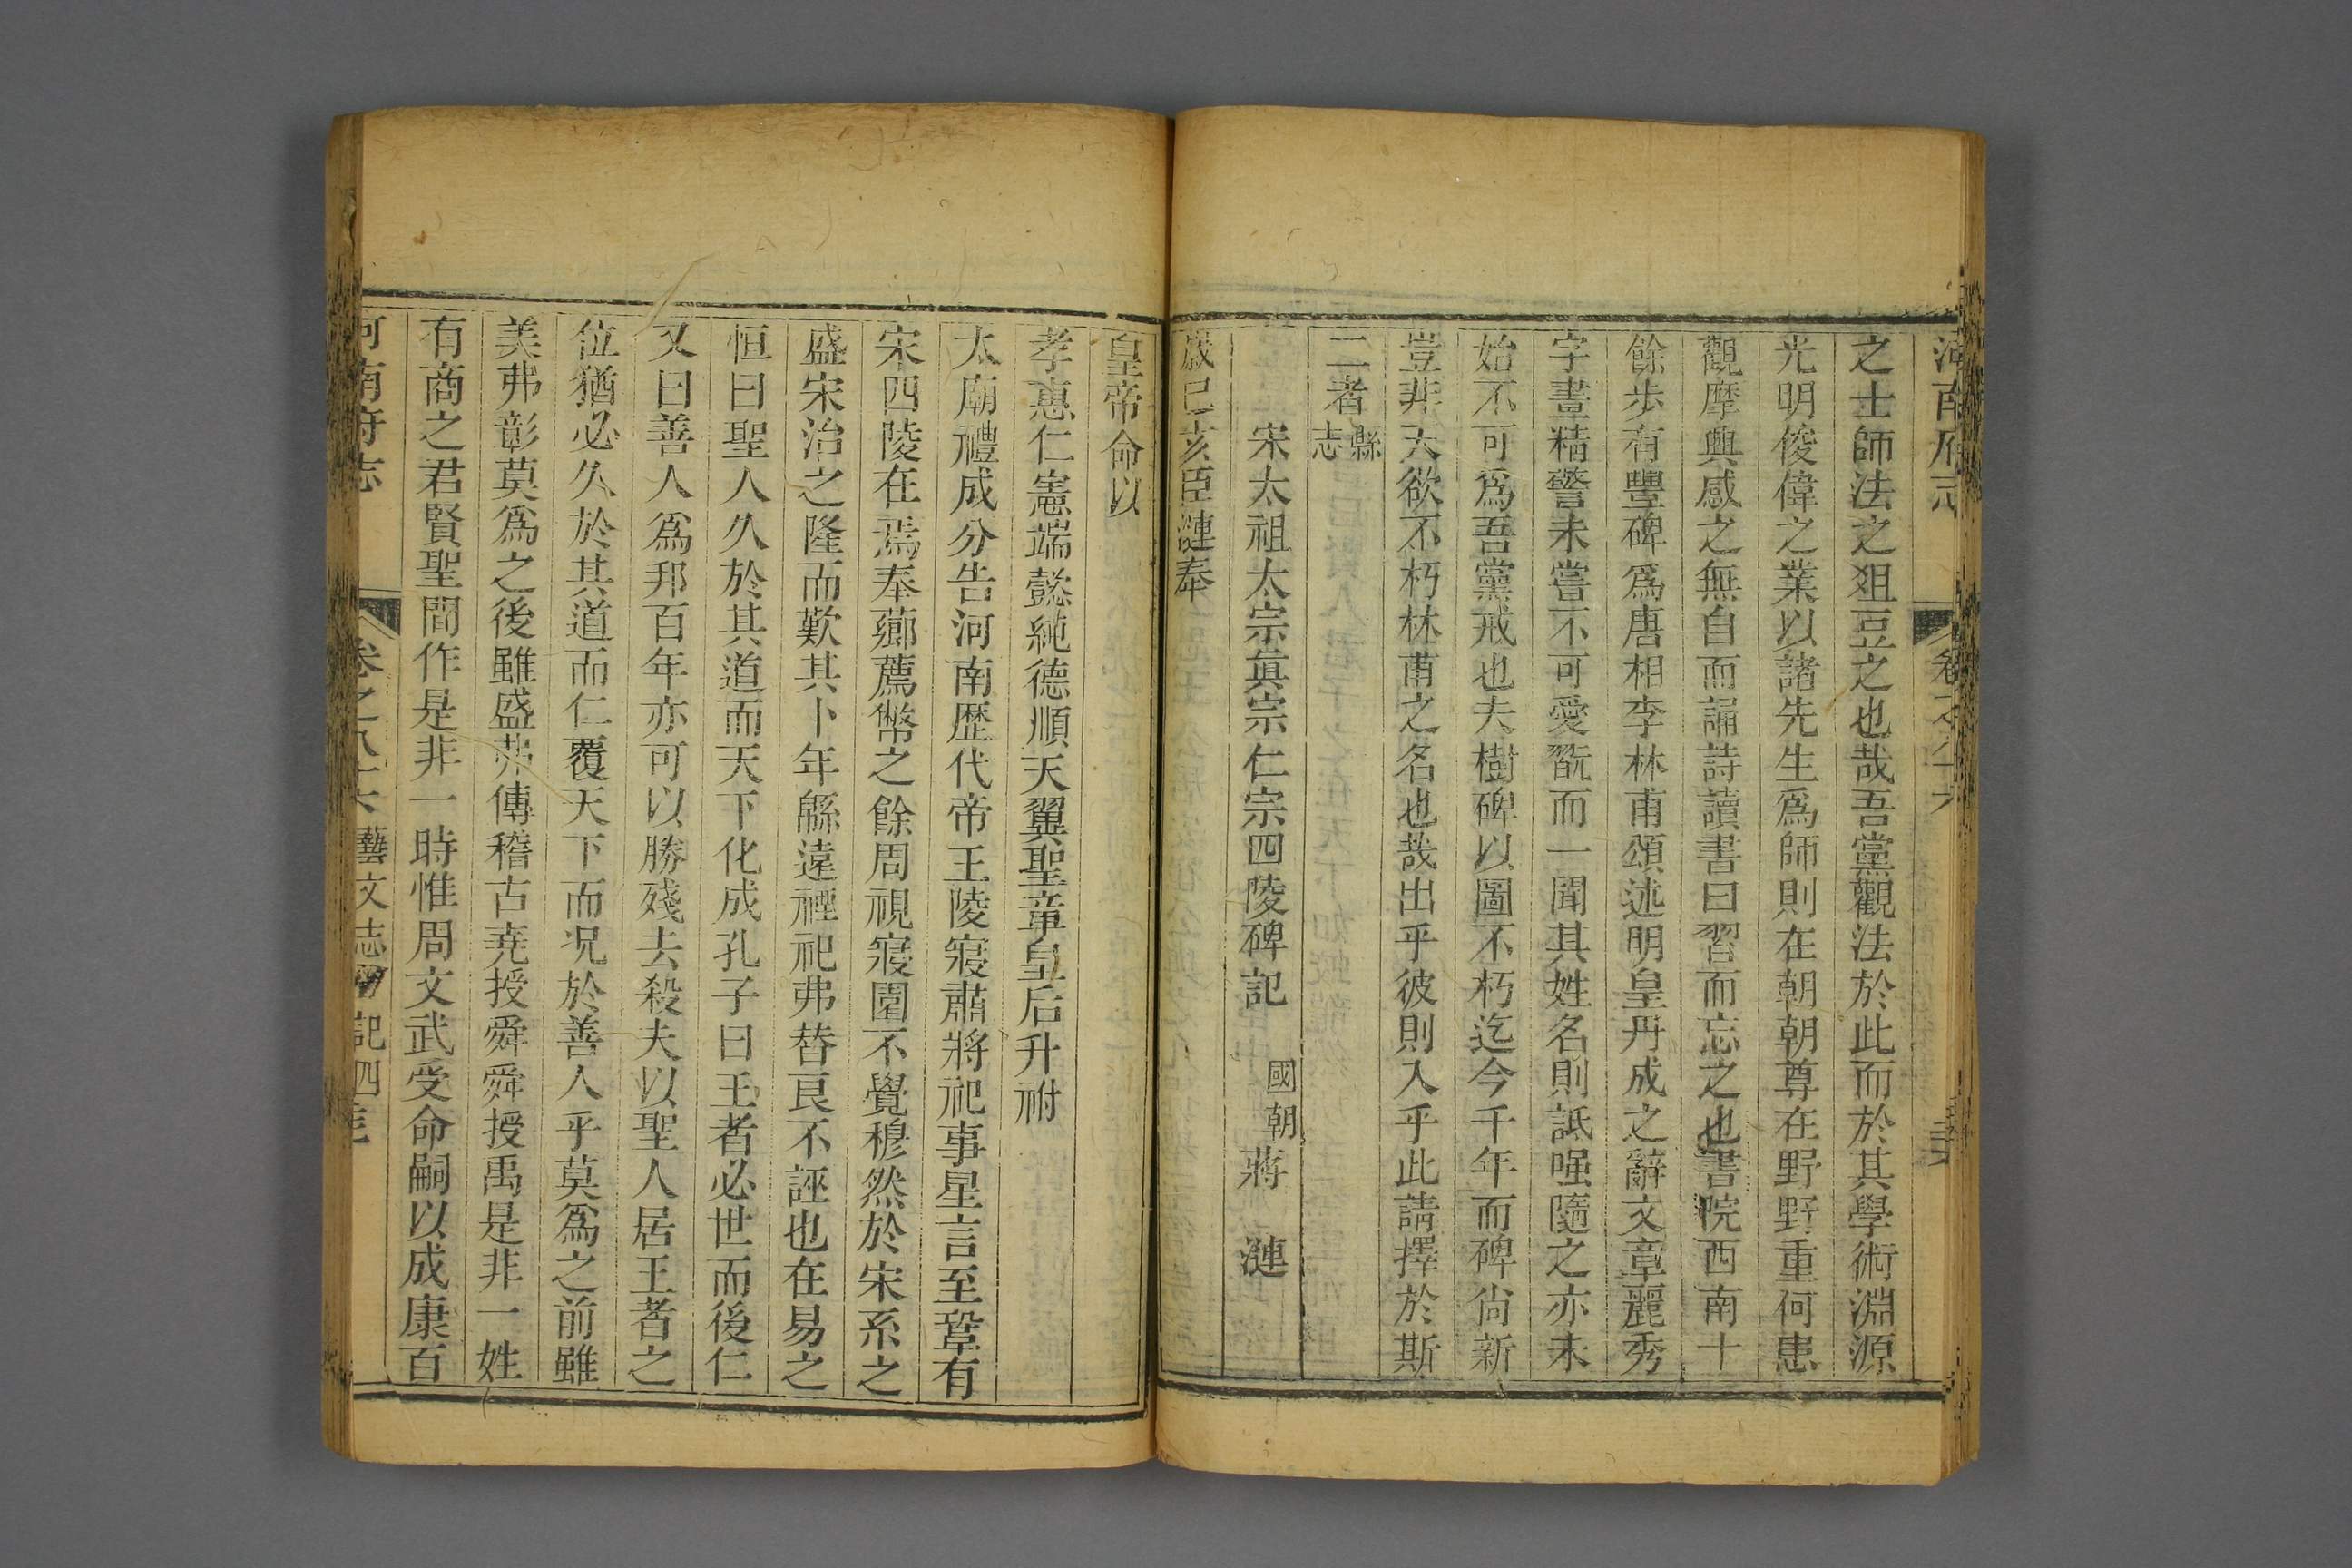 河南府志 卷之八十六
之士師法之爼豆之也哉吾黨觀法於此而於其學術淵源
光明俊偉之業以諸先生爲師則在朝朝尊在野野重何患
觀摩興感之無自而誦詩讀書日習而忘之也書院西南十
餘步有豐碑爲唐相李林甫頌述明皇丹成之辭文章麗秀
字畫精警未嘗不可愛翫而一聞其姓名則詆唾隨之亦未
始不可爲吾黨戒也夫樹碑以圖不朽迄今千年而碑尙新
豈非天欲不朽林甫之名也哉出乎彼則入乎此請擇於斯
二者縣志
宋太祖太宗眞宗仁宗四陵碑記 國朝蔣漣
歲己亥臣漣奉
皇帝命以
孝惠仁憲端懿純德順天翼聖章皇后升祔
太廟禮成分告河南歷代帝王陵寢肅將祀事星言至鞏有
宋四陵在焉奉薌薦幣之餘周視寢園不覺穆然於宋系之
盛宋治之隆而歎其卜年緜遠禋祀弗替良不誣也在易之
恒曰聖人久於其道而天下化成孔子曰王者必世而後仁
又曰善人爲邦百年亦可以勝殘去殺夫以聖人居王者之
位猶必久於其道而仁覆天下而况於善人乎莫爲之前雖
美弗彰莫爲之後雖盛弗傳稽古堯授舜舜授禹是非一姓
有商之君賢聖間作是非一時惟周文武受命嗣以成康百
河南府志 卷之八十六 藝文志 記四